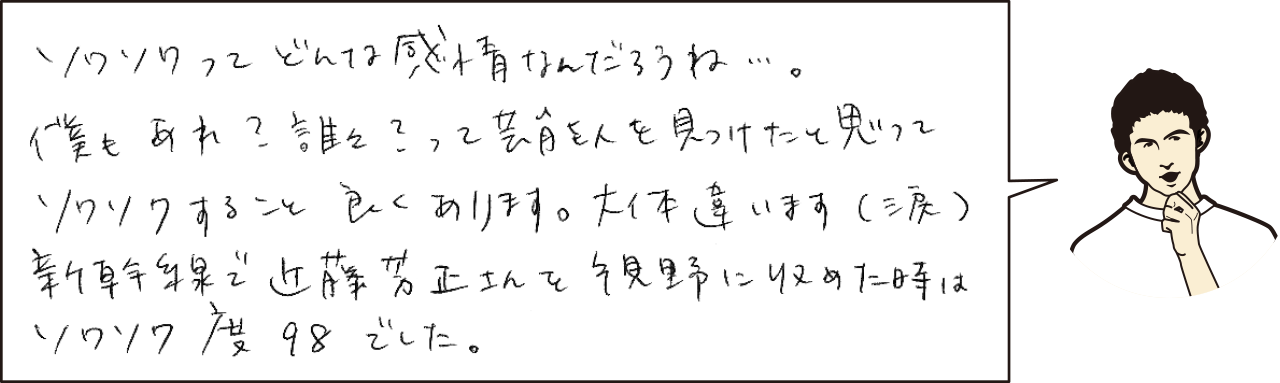 ソワソワってどんな感情なんだろうね…。
僕もあれ?誰々?って芸能人を見つけたと思って
ソワソワすること良くあります。大体違います(涙)
新幹線で近藤芳正さんを視野に収めた時は
ソワソワ度98でした。